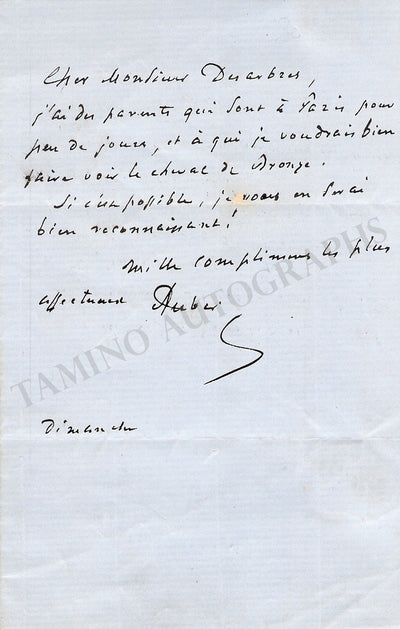 Cher Monsieur Desarbres,
j'ai des parents qui sont à Paris pour
peu de jours, et à qui je voudrais bien
faire voir le cheval de Bronze.
Si c'est possible, je vous en serai
bien reconnaissant!
mille compliments les plus
affectueux Auber
Dimanche
TAMINO AUTOGRAPHS